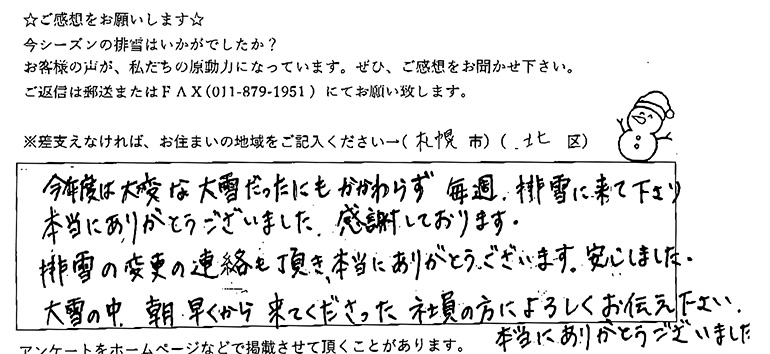 ☆ご感想をお願いします☆
今シーズンの排雪はいかがでしたか？
お客様の声が、私たちの原動力になっています。ぜひ、ご感想をお聞かせ下さい。
ご返信は郵送またはＦＡＸ(011-879-1951）にてお願い致します。
※差支えなければ、お住まいの地域をご記入ください→( 札幌 市) ( 北 区)
今年度は大変な大雪だったにもかかわらず 毎週、排雪に来て下さり
本当にありがとうございました。感謝しております。
排雪の変更の連絡も頂き、本当にありがとうございます。安心しました。
大雪の中、朝早くから来てくださった社員の方によろしくお伝え下さい。
本当にありがとうございました
アンケートをホームページなどで掲載させて頂くことがあります。